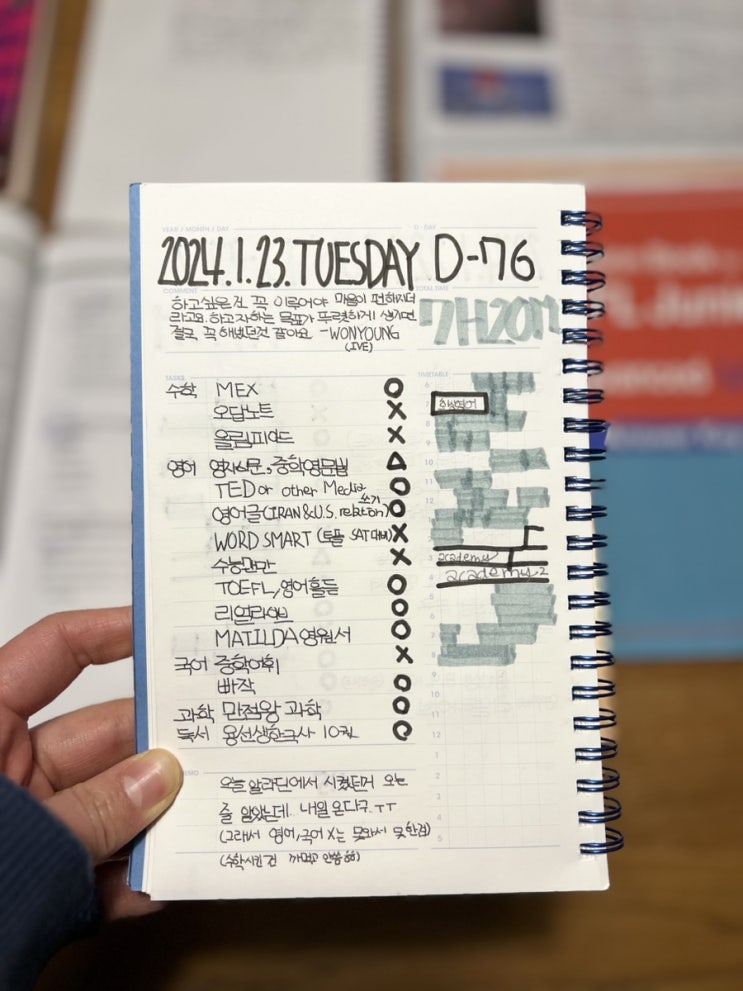 YEAR / MONTH / DAY
D-DAY
2024.1.23.TUESDAY D-76
COMMENT
TOTAL TIME
하고싶은건 꼭 이루어야 마음이 편해지더
라고요. 하고자하는 목표가 뚜렷하게 생기면
결국 꼭 해냈던것 같아요 -WONYOUNG
(IVE)
7H20m
TASKS
TIMETABLE
수학 MEX O
오답노트 X
올림피아드 X
영어 영자신문, 중학영문법 △
TED or other Media O
영어글쓰기(IRAN&U.S. relation) O
WORD SMART (토플 SAT대비) X
수능만만 X
TOEFL, 영어홀릭 O
리얼라이브 O
MATILDA 영원서 O
국어 중학어휘 X
빠작 O
과학 만점왕 과학 O
독서 용선생한국사 10권 O
6
8
10
11
12
1
2
3
academy
4
academy 2
5
6
7
8
9
10
11
12
1
2
3
4
5
MEMO
오늘 알라딘에서 시켰던거 오는
줄 알았는데. 내일 온다구.TT
(그래서 영어,국어 X는 못와서 못한것)
(수학시킨건 까먹고 안씀)